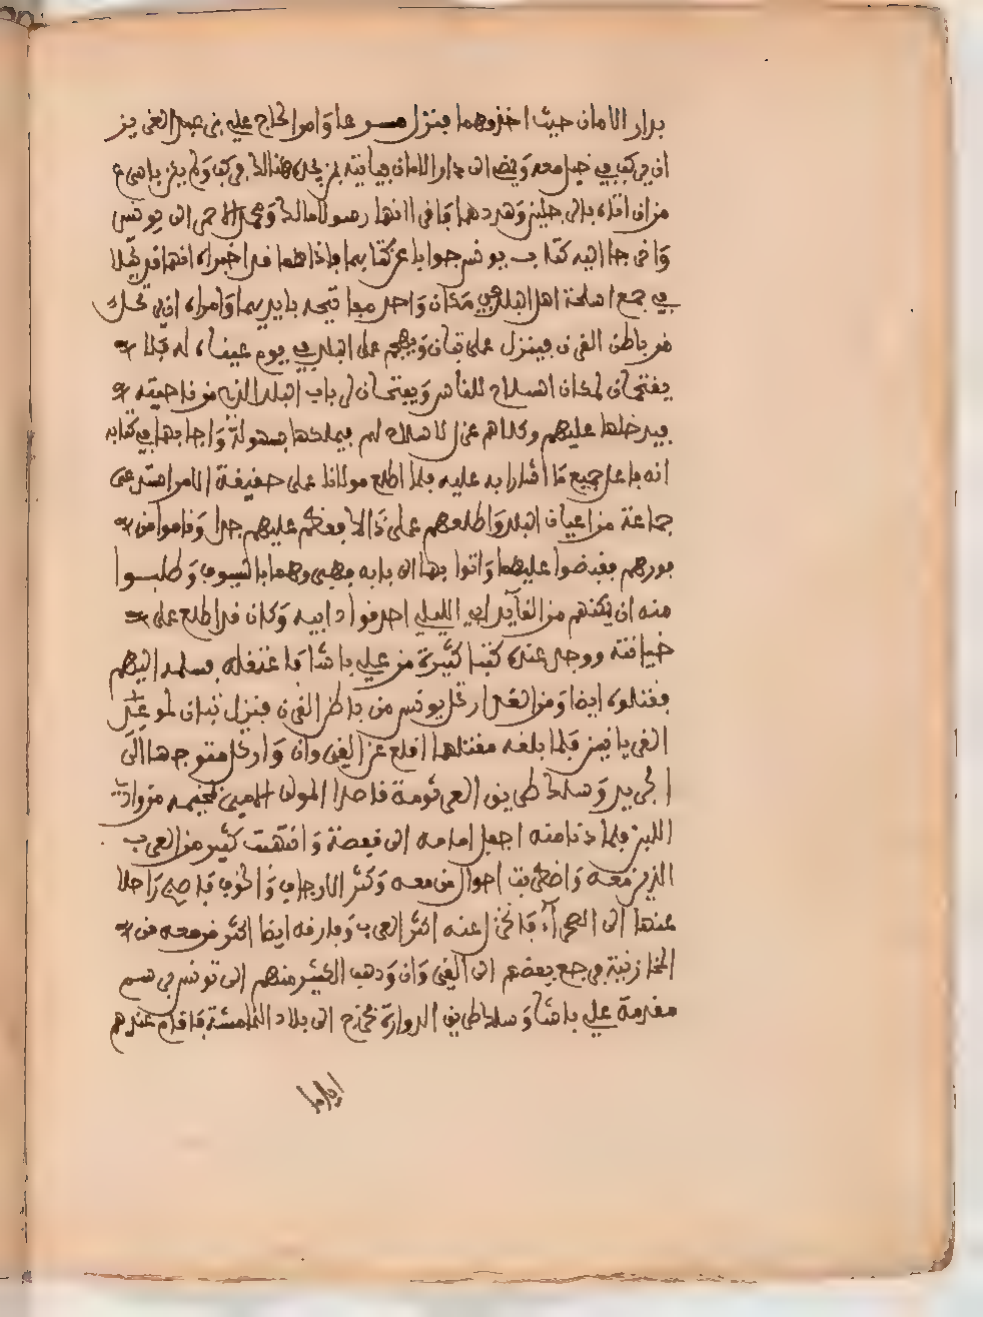 بدار الامان حيث اخذوهما فنزل مسرعا وامر الحاج علي بن عبد العزيز
ان يركب في خيل معه ويمض الى دار الامان فياتيه بمن يجده هنالك فركب ولم يكن باسرع
من ان اتاه بالرجلين وهددهما فاقرا انهما رسولا مالك ومحمد الاحمر الى يونس
وانهما اليه كتاب يونس جوابا عن كتابهما فاذا هما قد اخبراه انهما قد تحيلا
في جمع اسلحة اهل البلد في مكان واحد مفاتيحه بايديهما وامراه ان يتحرك
من باطن القرن فينزل على تبان ويهجم على البلد في يوم عيناه له فلا
يفتحان لمكان السلاح للناس ويفتحان له باب البلد الذي من ناحيته
فيدخلها عليهم وكلهم عزل لا سلاح لهم فيملكها بسهولة واجابهما في كتابه
انه فاعل جميع ما اشارا به عليه فلما اطلع مولانا على حقيقة الامر استدعى
جماعة من اعيان البلد واطلعهم على ذالك فعظم عليهم جدا وقاموا من
فورهم فقبضوا عليهما واتوا بهما الى بابه فهبروهما بالسيوف وطلبوا
منه ان يمكنهم من القآيد ابي الليلي احد قواد ابيه وكان قد اطلع على
خيانته ووجد عنده كتبا كثيرة من علي باشا فاعتقله فسلمه اليهم
فقتلوه ايضا ومن الغد ارتحل يونس من باطن القرن فنزل تبان لموعد
الغريانيين فلما بلغه مقتلهما اقلع عن القيروان وارتحل متوجها الى
الجريد وسلك طريق العرقوبة قاصدا المولى الامين لمخيمه من واد
اللبن فلما دنا منه اجفل امامه الى قفصة وانتهت كثير من العرب
الذين معه واضطربت احوال من معه وكثر الارجاف والخوف فاصبح راحلا
عنها الى الصحرآء فانخزل عنه اكثر العرب وفارقه ايضا اكثر من معه من
المخازنية فرجع بعضهم الى القيروان وذهب الكثير منهم الى تونس فرسم
مقدمة علي باشا وسلك طريق الدوارة فخرج الى بلاد النمامشة فاقام عندهم
اياما